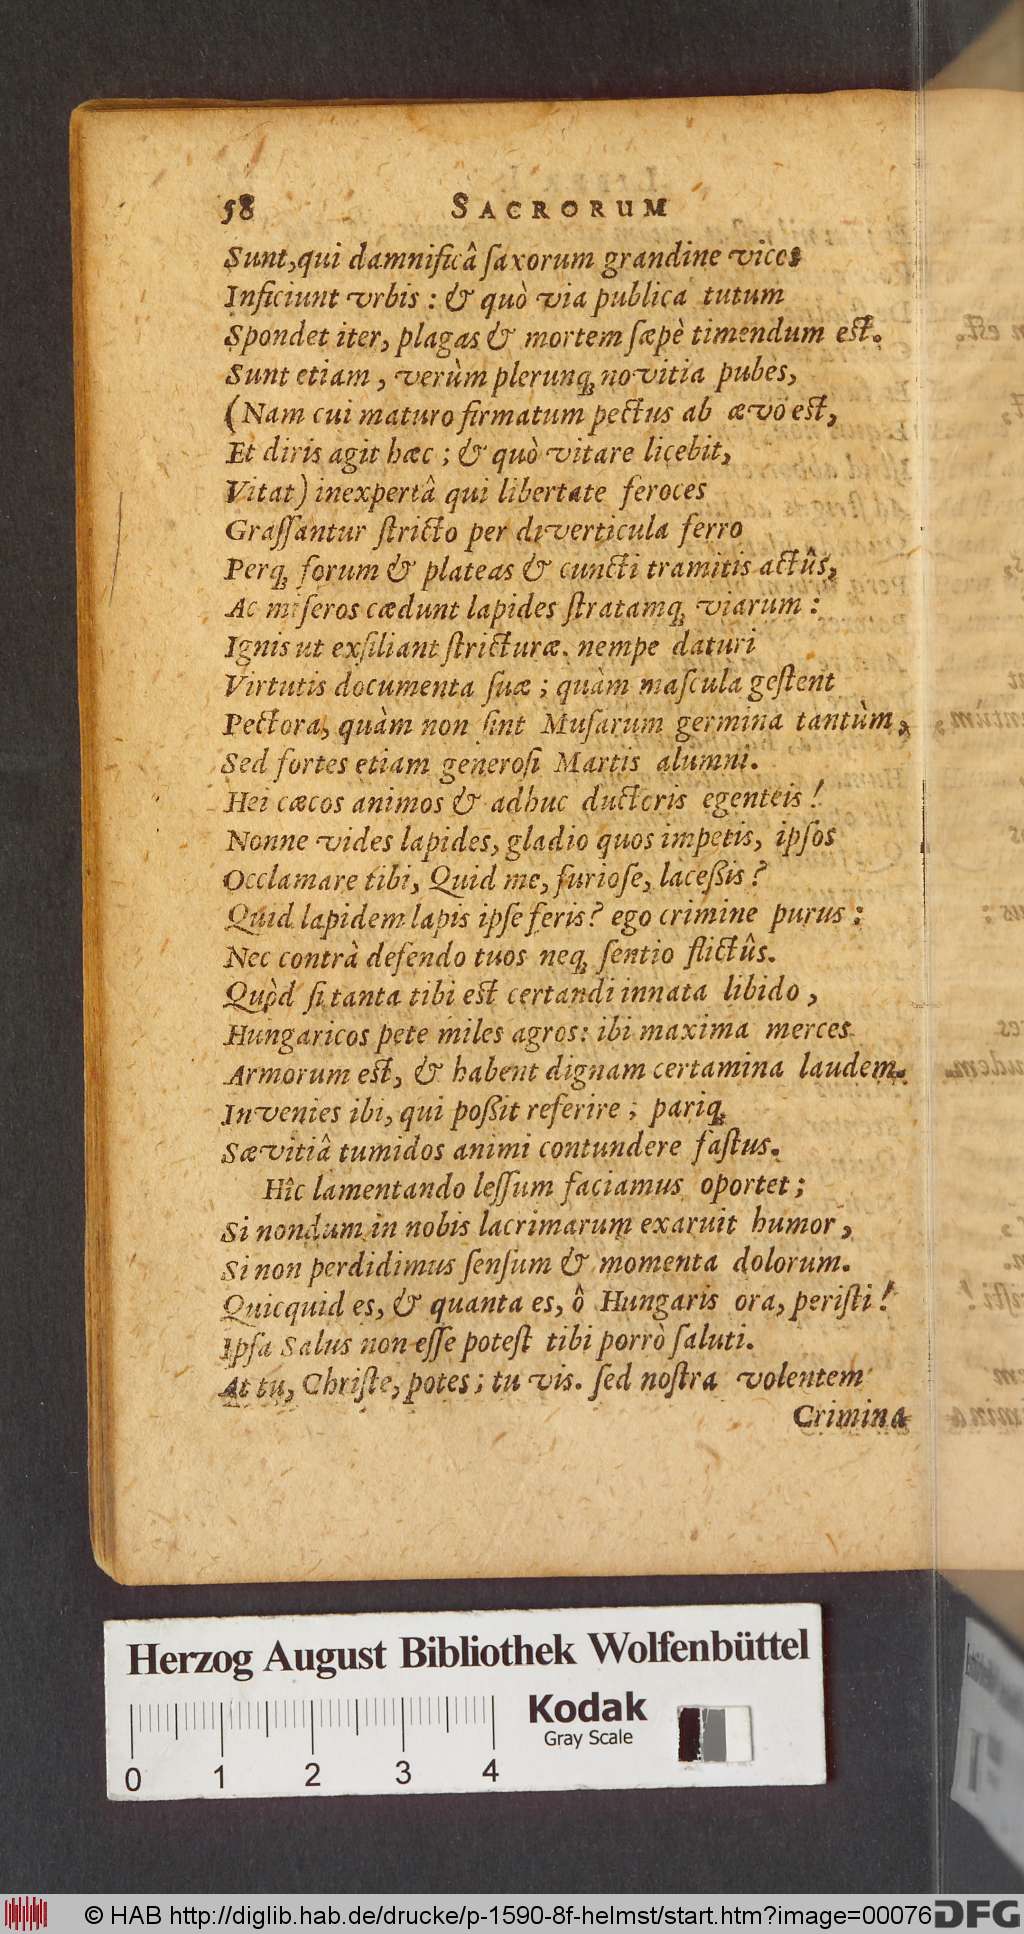 58 SACRORUM
Sunt, qui damnificâ ſaxorum grandine vicos
Inficiunt vrbis : & quò via publica tutum
Spondet iter, plagas & mortem ſæpè timendum eſt.
Sunt etiam, verùm plerunq; novitia pubes,
(Nam cui maturo firmatum pectus ab ævo eſt,
Et diris agit hæc ; & quò vitare licebit,
Vitat) inexpertâ qui libertate feroces
Graſſantur ſtricto per diverticula ferro
Perq; forum & plateas & cuncti tramitis actûs,
Ac miſeros cædunt lapides ſtratamq; viarum :
Ignis ut exſiliant ſtricturæ. nempe daturi
Virtutis documenta ſuæ ; quàm maſcula geſtent
Pectora, quàm non ſint Muſarum germina tantùm,
Sed fortes etiam generoſi Martis alumni.
Hei cæcos animos & adhuc ductoris egenteis !
Nonne vides lapides, gladio quos impetis, ipſos
Occlamare tibi, Quid me, furioſe, laceßis ?
Quid lapidem lapis ipſe feris ? ego crimine purus :
Nec contrà defendo tuos neq; ſentio flictûs.
Quòd ſi tanta tibi eſt certandi innata libido,
Hungaricos pete miles agros: ibi maxima merces
Armorum eſt, & habent dignam certamina laudem.
Invenies ibi, qui poßit referire ; pariq;
Sævitiâ tumidos animi contundere faſtus.
Hîc lamentando leſſum faciamus oportet ;
Si nondum in nobis lacrimarum exaruit humor,
Si non perdidimus ſenſum & momenta dolorum.
Quicquid es, & quanta es, ô Hungaris ora, periſti !
Ipſa Salus non eſſe poteſt tibi porrò ſaluti.
At tu, Chriſte, potes ; tu vis. ſed noſtra volentem
Crimina
Herzog August Bibliothek Wolfenbüttel
Kodak
Gray Scale
0 1 2 3 4
© HAB http://diglib.hab.de/drucke/p-1590-8f-helmst/start.htm?image=00076
DFG